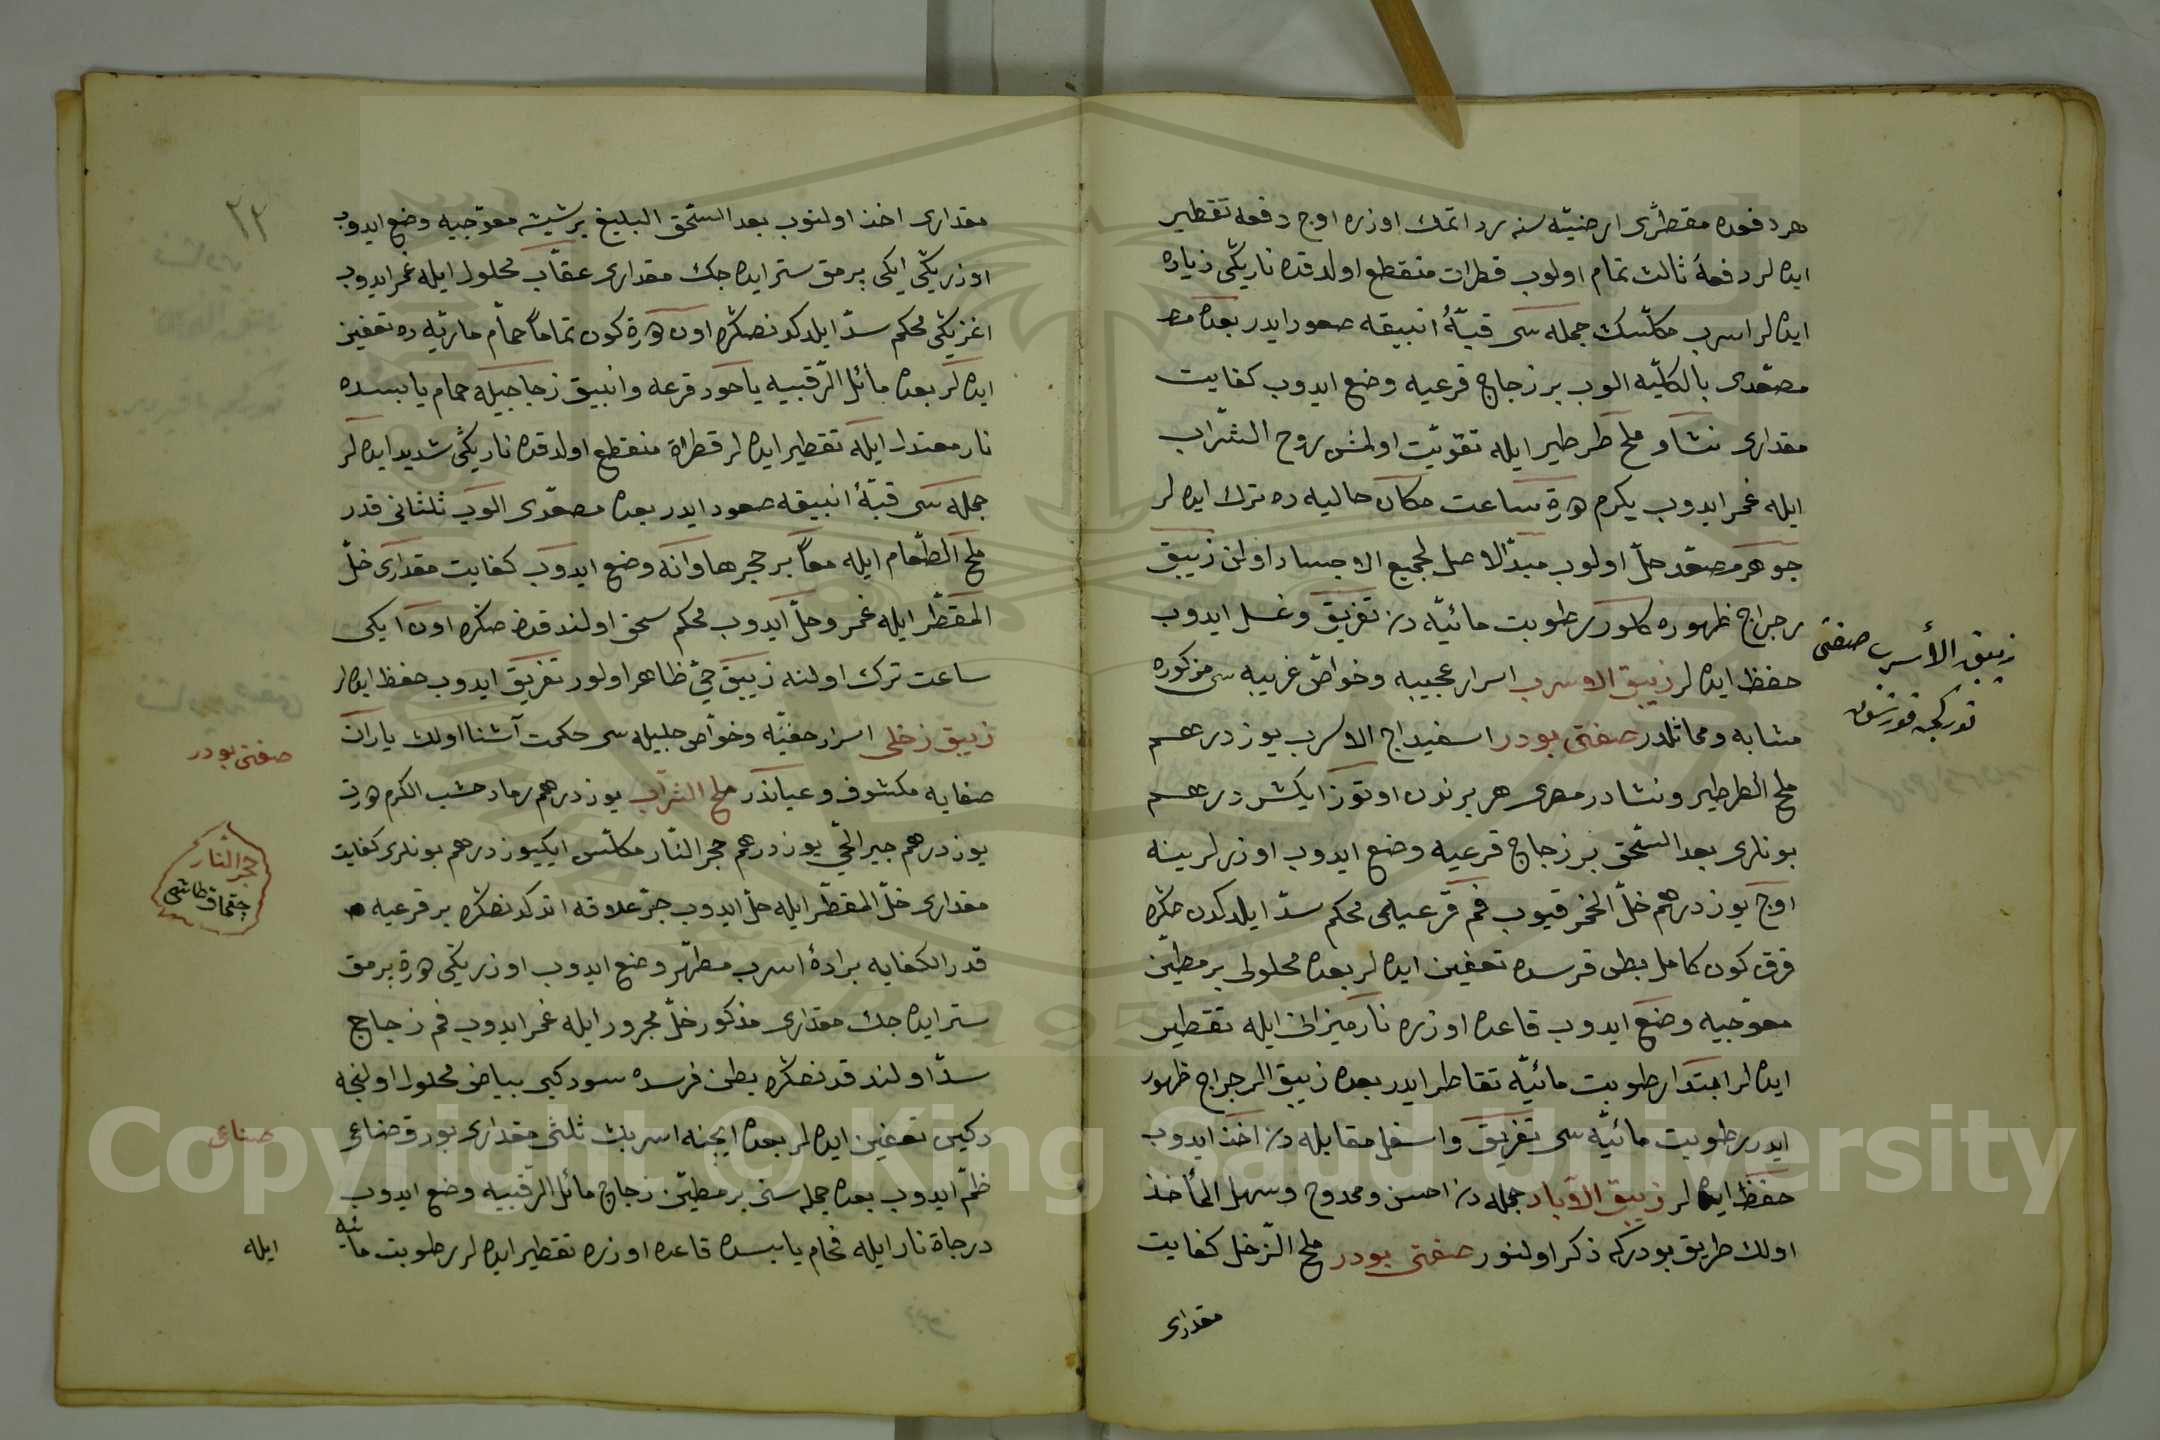 هر دفعه‌ده مقطری ارضیّه سنه رد اتمك اوزره اوچ دفعه تقطیر
ایده‌لر دفعۀ ثالث تمام اولوب قطرات منقطع اولدقده نارینکی زیاده
ایده‌لر اسرب مکلّسك جمله سی قبّۀ انبیقه صعود ایدر بعده
مصعّدی بالکلّیه الوب بر زجاج قرعیه وضع ایدوب کفایت
مقداری نشا و ملح طرطیر ایله تقویّت اولمش روح الشّراب
ایله غمر ایدوب یکرم ساعت مکان حالیه ده ترك ایده‌لر
جوهر مصعّد حلّ اولوب مبدّ الاصل لجمیع الاجساد اولن زیبق
رجراج ظهوره کلور رطوبت مائیّه دن تفریق وغسل ایدوب
حفظ ایده‌لر زیبق الاسرب اسرار عجیبه وخواصّ غریبه سی مذکوره
مشابه ومماثلدر صفتی بودر اسفیداج الاسرب یوز درهم
ملح الطرطیر ونشادر مصری هر برندن اوتوز ایکشر درهم
بونلری بعد السّحق بر زجاج قرعیه وضع ایدوب اوزرلرینه
اوچ یوز درهم خلّ الخمر قیوب فم قرعیلی محکم سدّ ایلدکدن صکره
قرق کون کامل بطن فرسده تعفین ایده‌لر بعده محلولی بر مطیّن
معوّجیه وضع ایدوب قاعده اوزره نار میزانی ایله تقطیر
ایده‌لر ابتدا رطوبت مائیّه تقاطر ایدر بعده زیبق الرجراج ظهور
ایدر رطوبت مائیّه سی تفریق واسفل مقابله دن اخذ ایدوب
حفظ ایده‌لر زیبق الآبار جمله دن احسن وممدوح وسهل المأخذ
اولان طریق بودرکه ذکر اولنور صفتی بودر ملح الزّحل کفایت
مقداری
زیبق الأسرب صفتی
تورکجه قورشون
مقداری اخذ اولنوب بعد السّحق البلیغ بر شیشه معوّجیه وضع ایدوب
اوزرینکی ایکی برمق ستر ایده جك مقداری عقّاب محلول ایله غمر ایدوب
اغزینکی محکم سدّ ایلدکدنصکره اون کون تماماً حمّام ماریّه ده تعفین
ایده‌لر بعده مائل الرّقبیه یاخود قرعه وانبیق زجاجیله حمام یابسده
نار معتدل ایله تقطیر ایده‌لر قطرات منقطع اولدقده نارینکی شدید ایده‌لر
جمله سی قبّۀ انبیقه صعود ایدر بعده مصعّدی الوب ثلثانی قدر
ملح الطّعام ایله معاً بر حجر هاوانه وضع ایدوب کفایت مقداری خلّ
المقطّر ایله غمر وحلّ ایدوب محکم سحق اولندقدنصکره اون ایکی
ساعت ترك اولنه زیبق حیّ ظاهر اولور تفریق ایدوب حفظ ایده‌لر
زیبق زحلی اسرار خفیّه وخواصّ جلیله سی حکمت آشنا اولان یاران
صفایه مکشوف وعیاندر ملح التّراب یوز درهم رماد خشب الکرم
یوز درهم جیر الحیّ یوز درهم حجر النّار مکلّس ایکیوز درهم بونلری کفایت
مقداری خلّ المقطّر ایله حلّ ایدوب جرّ علاقه اتدکدنصکره بر قرعیه
قدر الکفایه برادۀ اسرب مطهّر وضع ایدوب اوزرینکی برمق
ستر ایده جك مقداری مذکور خلّ مجرور ایله غمر ایدوب فم زجاج
سدّ اولندقدنصکره بطن فرسده سود کبی بیاض محلول اولنجه
دکین تعفین ایده‌لر بعده ایچنه اسربك ثلثی مقداری بورق صناعی
ظمّ ایدوب بعده جمله سنی بر مطیّن زجاج مائل الرّقبیه وضع ایدوب
درجات نار ایله حمام یابسده قاعده اوزره تقطیر ایده‌لر رطوبت مائیه
ایله
٢٢
صفتی بودر
حجر النار
چقماق طاشی
صناعی
Copyright © King Saud University
1957